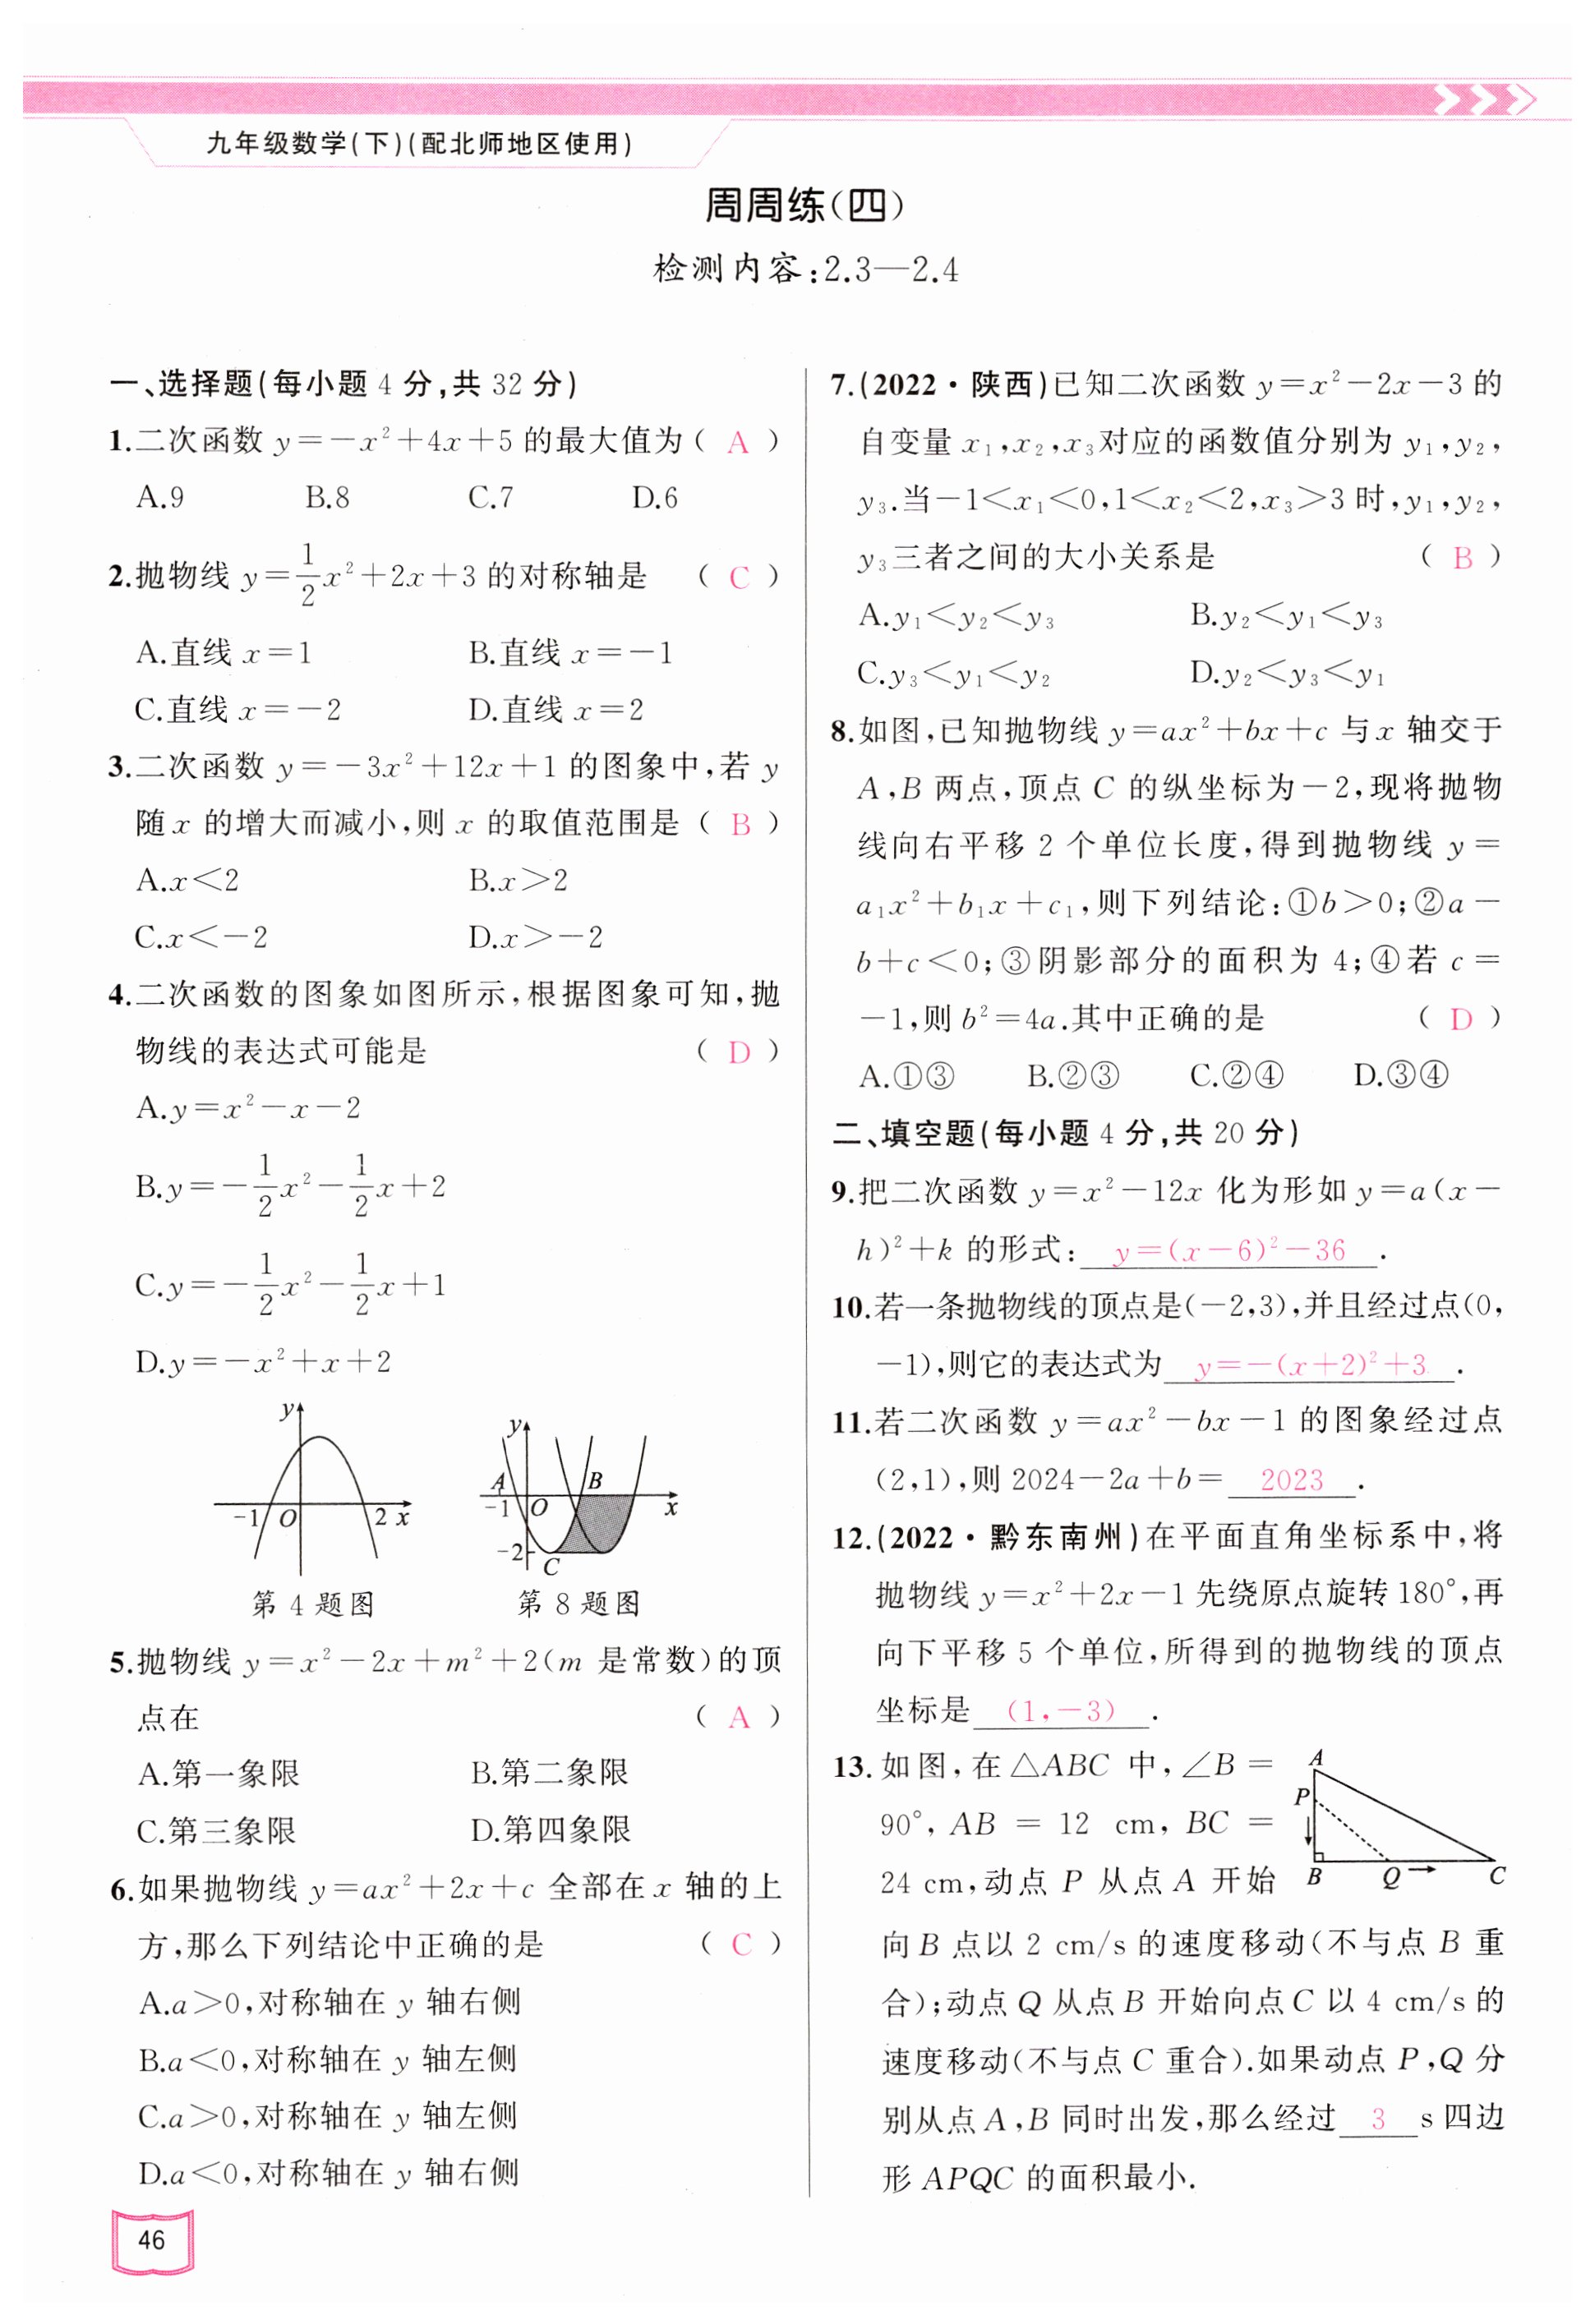 九年级数学(下)(配北师地区使用)
周周练(四)
检测内容:2.3—2.4
一、选择题(每小题 4 分,共 32 分)
1.二次函数 y=-x²+4x+5 的最大值为( A )
A.9 B.8 C.7 D.6
2.抛物线 y=1/2x²+2x+3 的对称轴是 ( C )
A.直线 x=1 B.直线 x=-1
C.直线 x=-2 D.直线 x=2
3.二次函数 y=-3x²+12x+1 的图象中,若 y
随 x 的增大而减小,则 x 的取值范围是( B )
A.x<2 B.x>2
C.x<-2 D.x>-2
4.二次函数的图象如图所示,根据图象可知,抛
物线的表达式可能是 ( D )
A.y=x²-x-2
B.y=-1/2x²-1/2x+2
C.y=-1/2x²-1/2x+1
D.y=-x²+x+2
y
-1 O 2 x
第 4 题图
y
A B
-1 O x
-2 C
第 8 题图
5.抛物线 y=x²-2x+m²+2(m 是常数)的顶
点在 ( A )
A.第一象限 B.第二象限
C.第三象限 D.第四象限
6.如果抛物线 y=ax²+2x+c 全部在 x 轴的上
方,那么下列结论中正确的是 ( C )
A.a>0,对称轴在 y 轴右侧
B.a<0,对称轴在 y 轴左侧
C.a>0,对称轴在 y 轴左侧
D.a<0,对称轴在 y 轴右侧
46
7.(2022·陕西)已知二次函数 y=x²-2x-3 的
自变量 x₁,x₂,x₃对应的函数值分别为 y₁,y₂,
y₃.当-1<x₁<0,1<x₂<2,x₃>3 时,y₁,y₂,
y₃三者之间的大小关系是 ( B )
A.y₁<y₂<y₃ B.y₂<y₁<y₃
C.y₃<y₁<y₂ D.y₂<y₃<y₁
8.如图,已知抛物线 y=ax²+bx+c 与 x 轴交于
A,B 两点,顶点 C 的纵坐标为-2,现将抛物
线向右平移 2 个单位长度,得到抛物线 y=
a₁x²+b₁x+c₁,则下列结论:①b>0;②a-
b+c<0;③阴影部分的面积为 4;④若 c=
-1,则 b²=4a.其中正确的是 ( D )
A.①③ B.②③ C.②④ D.③④
二、填空题(每小题 4 分,共 20 分)
9.把二次函数 y=x²-12x 化为形如 y=a(x-
h)²+k 的形式: y=(x-6)²-36 .
10.若一条抛物线的顶点是(-2,3),并且经过点(0,
-1),则它的表达式为 y=-(x+2)²+3 .
11.若二次函数 y=ax²-bx-1 的图象经过点
(2,1),则 2024-2a+b= 2023 .
12.(2022·黔东南州)在平面直角坐标系中,将
抛物线 y=x²+2x-1 先绕原点旋转 180°,再
向下平移 5 个单位,所得到的抛物线的顶点
坐标是 (1,-3) .
13.如图,在△ABC 中,∠B=
90°, AB = 12 cm, BC =
24 cm,动点 P 从点 A 开始
向 B 点以 2 cm/s 的速度移动(不与点 B 重
合);动点 Q 从点 B 开始向点 C 以 4 cm/s 的
速度移动(不与点 C 重合).如果动点 P,Q 分
别从点 A,B 同时出发,那么经过 3 s 四边
形 APQC 的面积最小.
A
P
B Q C